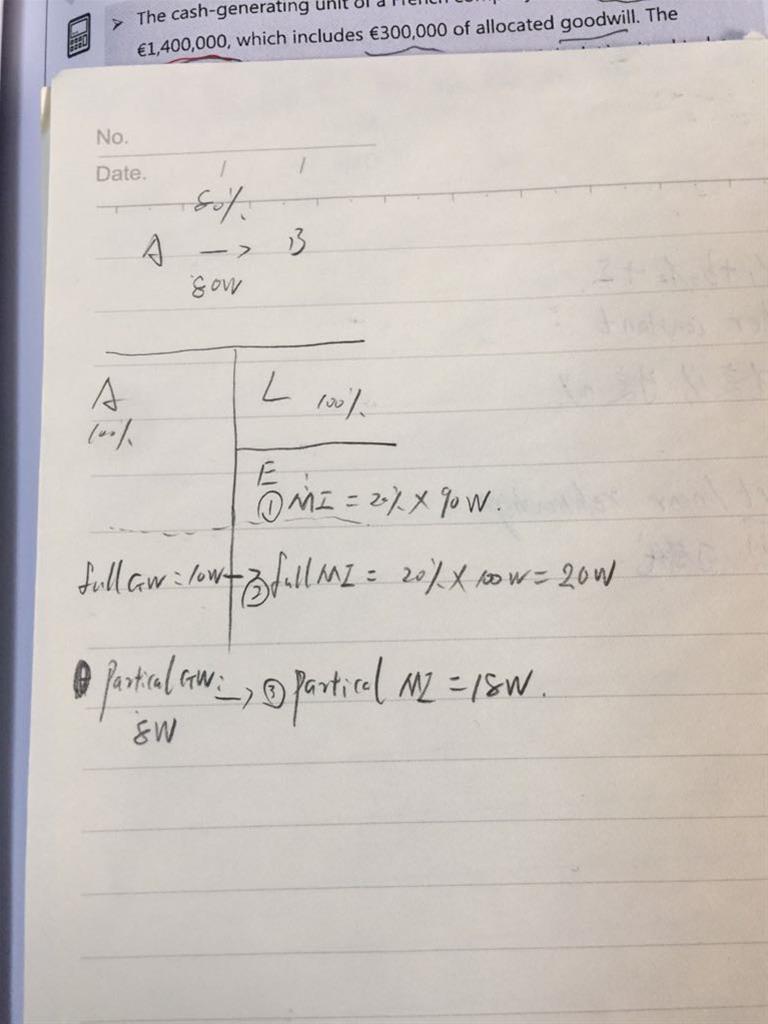 The cash-generating unit of a French
€1,400,000, which includes €300,000 of allocated goodwill. The
No.
Date. / /
80%
A → B
80W
A L 100%
100%
E
① MI = 20% X 90W.
full GW: 10W → ② full MI = 20% X 100W = 20W
Partical GW: → ③ Partical MI = 18W.
8W